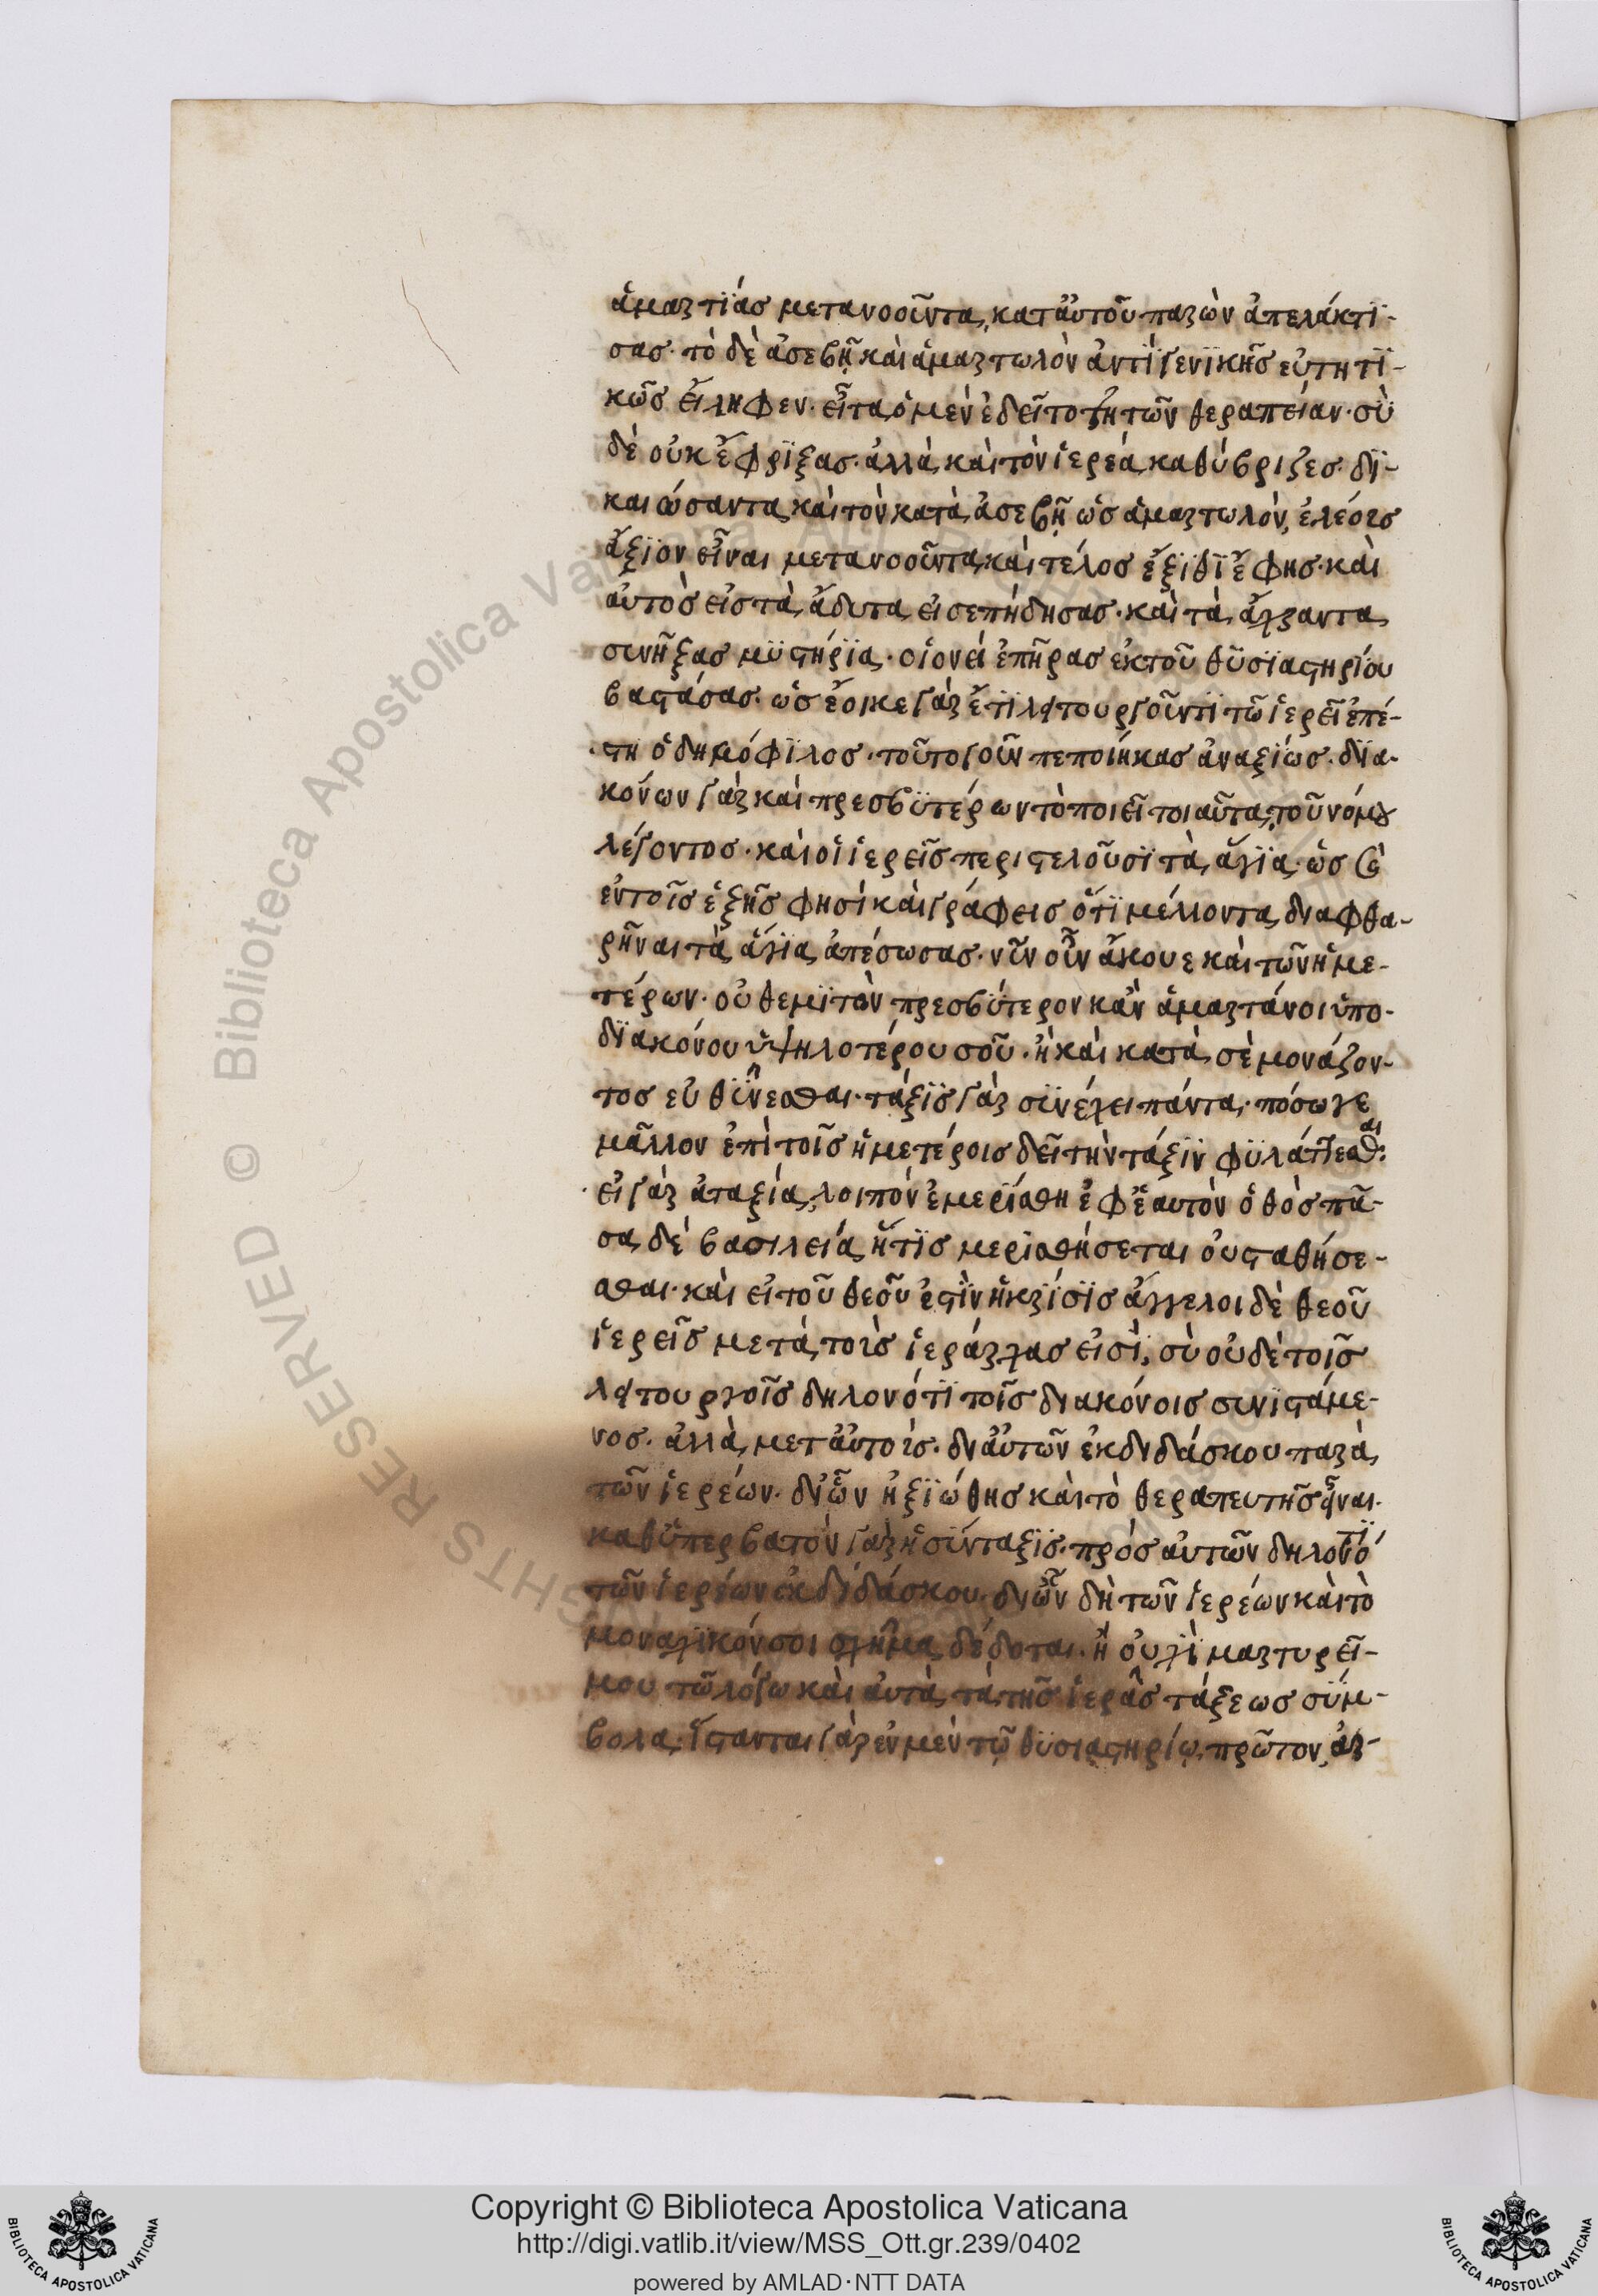 ἁμαρτίας μετανοοῦντα, κατ' αὐτοῦ παρὼν ἀπελάκτι-
σας· τὸ δὲ ἀσεβῆ καὶ ἁμαρτωλὸν ἀντὶ γενικῆς εὐτητι-
κῶς εἴληφεν· εἶτα, ὁ μὲν ἐδεῖτο ζητῶν θεραπείαν· σὺ
δὲ οὐκ ἔφριξας· ἀλλὰ καὶ τὸν ἱερέα καθύβριζες· δι-
καιώσαντα καὶ τὸν κατὰ ἀσεβῆ ὡς ἁμαρτωλὸν, ἐλέοις
ἄξιον εἶναι μετανοοῦντα, καὶ τέλος ἔξιθι ἔφης· καὶ
αὐτὸς εἰς τὰ ἄδυτα εἰσεπήδησας· καὶ τὰ ἄχραντα
συνῆξας μυστήρια· οἱονεὶ ἐπῆρας ἐκ τοῦ θυσιαστηρίου
βαστάσας· ὡς ἔοικε γὰρ ἔτι λειτουργοῦντι τῶ ἱερεῖ ἐπέ-
στη ὁ δημόφιλος· τοῦτο γοῦν πεποίηκας ἀναξίως· δια-
κόνων γὰρ καὶ πρεσβυτέρων τὸ ποιεῖ τοιαῦτα, τοῦ νόμου
λέγοντος· καὶ οἱ ἱερεῖς περιστελοῦσι τὰ ἅγια· ὡς
ἐν τοῖς ἑξῆς φησὶ καὶ γράφεις ὅτι μέλλοντα διαφθα-
ρῆναι τὰ ἅγια ἀπέσωσας· νῦν οὖν ἄκουε καὶ τῶν ἡμε-
τέρων· οὐ θεμιτὸν πρεσβύτερον κἂν ἁμαρτάνοι ὑπο-
διακόνου ὑψηλοτέρου σοῦ· ἢ καὶ κατὰ σὲ μονάζον-
τος εὐθύνεσθαι· τάξις γὰρ συνέχει πάντα· πόσω γε
μᾶλλον ἐπὶ τοῖς ἡμετέροις δεῖ τὴν τάξιν φυλάττεσθαι·
εἰ γὰρ ἀταξία, λοιπὸν ἐμερίσθη ἐφ' ἑαυτὸν ὁ θσ· πᾶ-
σα δὲ βασιλεία ἥτις μερισθήσεται οὐ σταθήσε-
σθαι· καὶ εἰ τοῦ θεοῦ ἐστὶν ἡ κρίσις ἄγγελοι δὲ θεοῦ
ἱερεῖς μετὰ τοὺς ἱεράρχας εἰσὶ, σὺ οὐδὲ τοῖς
λειτουργοῖς δηλονότι τοῖς διακόνοις συνιστάμε-
νος· ἀλλὰ μετ' αὐτοὺς· δι' αὐτῶν ἐκδιδάσκου παρὰ
τῶν ἱερέων· δι' ὧν ἠξιώθης καὶ τὸ θεραπευτὴς εἶναι·
καθ' ὑπερβατὸν γὰρ ἡ σύνταξις· πρὸς αὐτῶν δηλονότι
τῶν ἱερέων ἐκδιδάσκου· δι' ὧν δὴ τῶν ἱερέων καὶ τὸ
μοναχικόν σοι σχῆμα δέδοται· ἢ οὐχὶ μαρτυρεῖ-
μου τῶ λόγω καὶ αὐτὰ τὰ τῆς ἱερᾶς τάξεως σύμ-
βολα; ἵστανται γὰρ ἐν μὲν τῷ θυσιαστηρίῳ πρῶτον ἀρ-
Copyright © Biblioteca Apostolica Vaticana
http://digi.vatlib.it/view/MSS_Ott.gr.239/0402
powered by AMLAD·NTT DATA